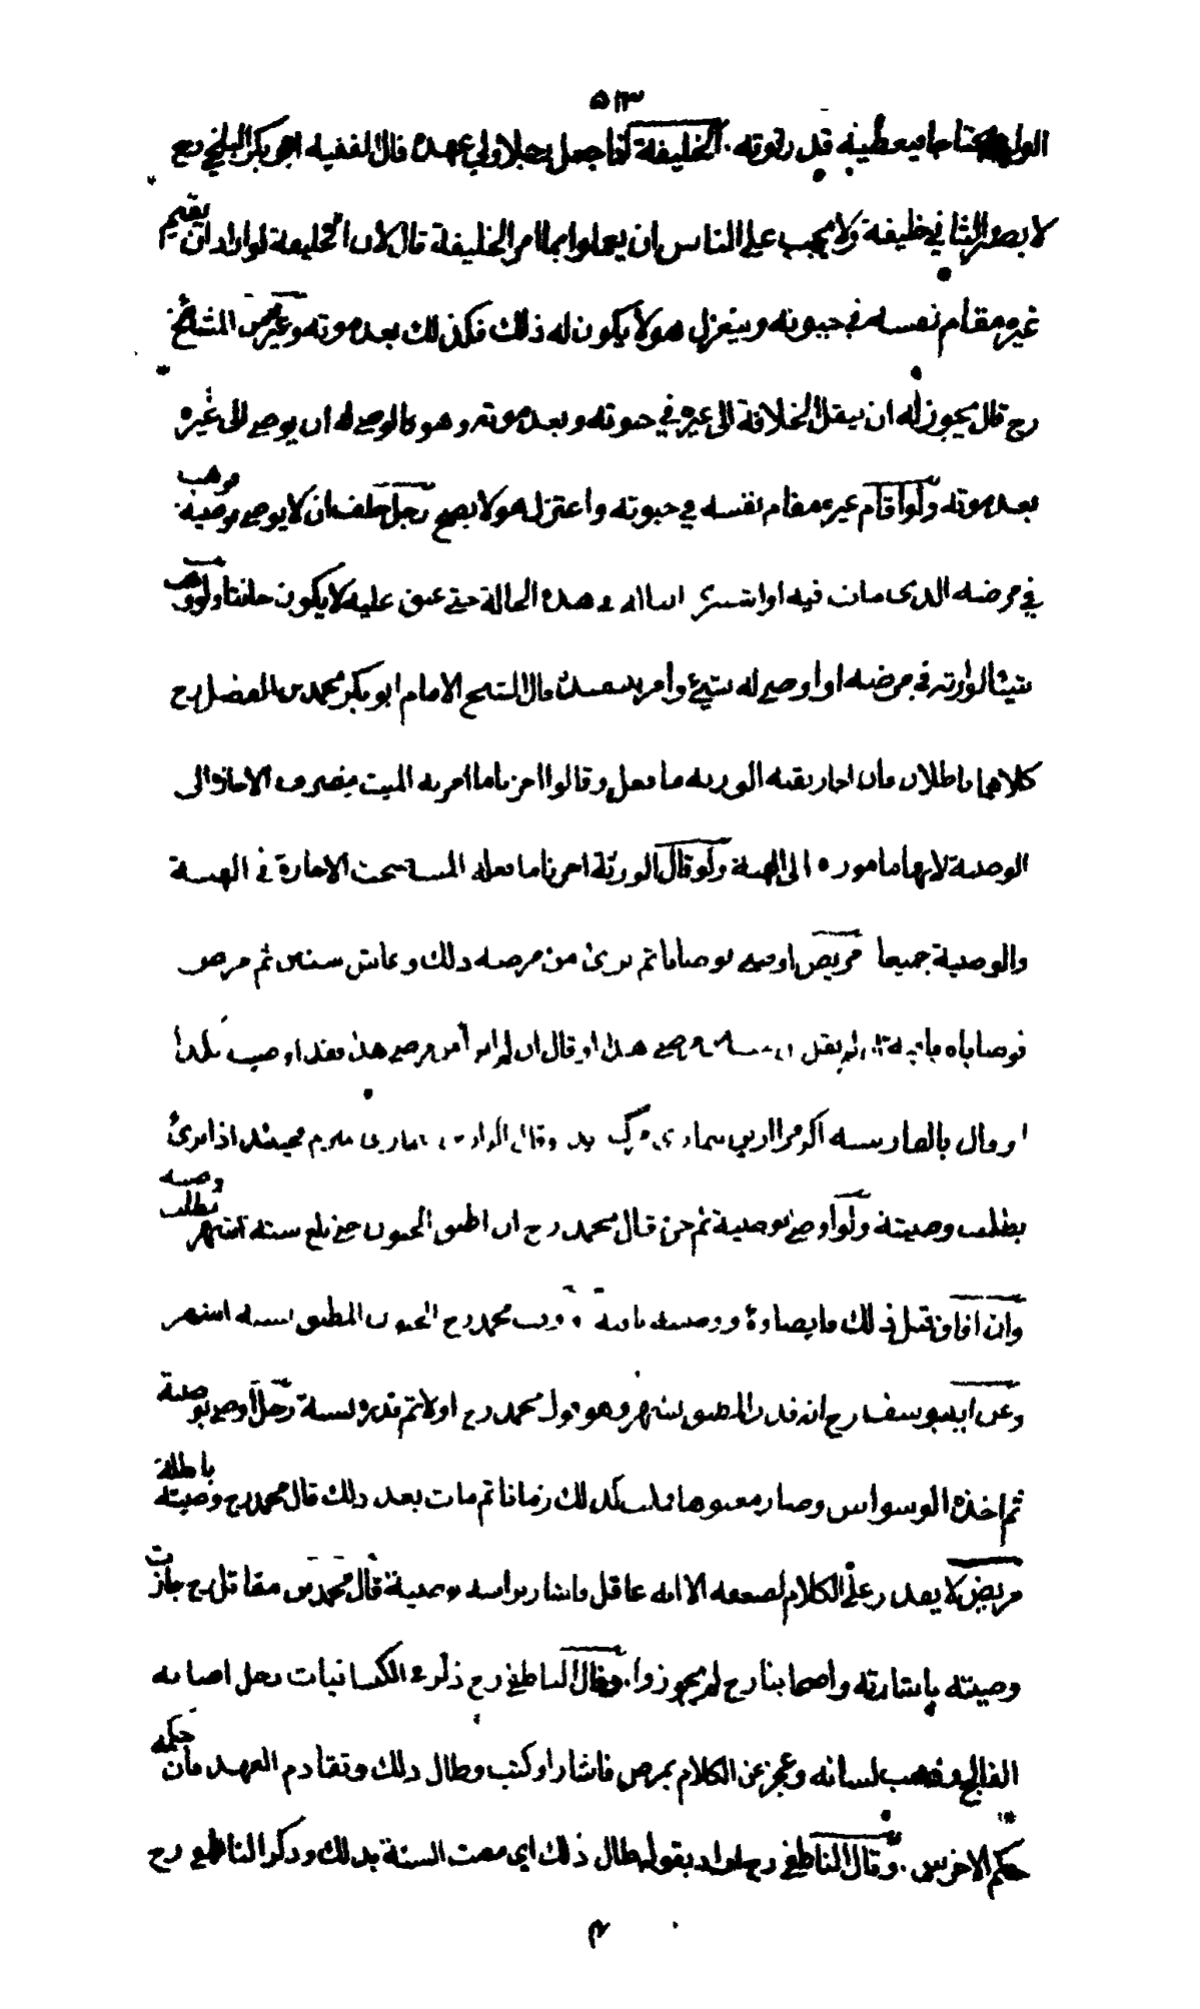 ٥١٣
محتاجا فيعطيه قدر قوته الخليفة اذا جعل رجلا ولي عهده قال الفقيه ابو بكر البلخي رح
لا يصير الثاني خليفة ولا يجب على الناس ان يعملوا بما امر الخليفة قال لان الخليفة لو اراد ان يقيم
غيره مقام نفسه في حيوته وينعزل هو لا يكون له ذلك فكذلك بعد موته وعن بعض المشائخ
رح قال يجوز له ان ينقل الخلافة الى غيره في حيوته وبعد موته وهو كالوصي له ان يوصي الى غيره
بعد موته ولو اقام غيره مقام نفسه في حيوته واعتزل هو لا يصح رجل حلف ان لا يوصي بوصية فوهب
في مرضه الذي مات فيه او اشترى في هذه الحالة حتى عتق عليه لا يكون حانثا ولو وهب
شيئا لوارثه في مرضه او اوصى له بشيء وامر قال الشيخ الامام ابو بكر محمد بن الفضل رح
كلاهما باطلان فان اجاز بقية الورثة ما فعل وقالوا اجزنا ما امر به الميت ينصرف الاجازة الى
الوصية لانها مامورة الى الهبة ولو قال الورثة اجزنا ما فعله الميت صحت الاجازة في الهبة
والوصية جميعا مريض اوصى بوصايا ثم برئ من مرضه ذلك وعاش سنين ثم مرض
فوصاياه لم يقل من مرضي هذا او قال ان لم ابرأ من مرضي هذا فقد اوصيت بكذا
او قال بالفارسية اكر مرا ازين بيماري فحينئذ اذا برئ
بطلت وصيته ولو اوصى بوصية ثم جن قال محمد رح ان اطبق الجنون حتى بلغ ستة اشهر بطلت وصيته
وان افاق قبل ذلك محمد رح الجنون المطبق بستة اشهر
وعن ابي يوسف رح انه قدر المطبق بشهر وهو قول محمد رح اولا ثم قدره بسنة رجل اوصى بوصية
ثم اخذه الوسواس وصار معتوها فمكث كذلك زمانا ثم مات بعد ذلك قال محمد رح وصيته باطلة
مريض لا يقدر على الكلام لضعفه الا انه عاقل فاشار براسه بوصية قال محمد بن مقاتل رح جازت
وصيته باشارته واصحابنا رح لم يجوزوا وقال الناطفي رح ذكر في الكيسانيات رجل اصابه
الفالج فذهب لسانه وعجز عن الكلام بمرض فاشار او كتب وطال ذلك وتقادم العهد فان حكمه
حكم الاخرس وقال الناطفي رح اراد بقوله طال ذلك اي مضت السنة بذلك وذكر الناطفي رح